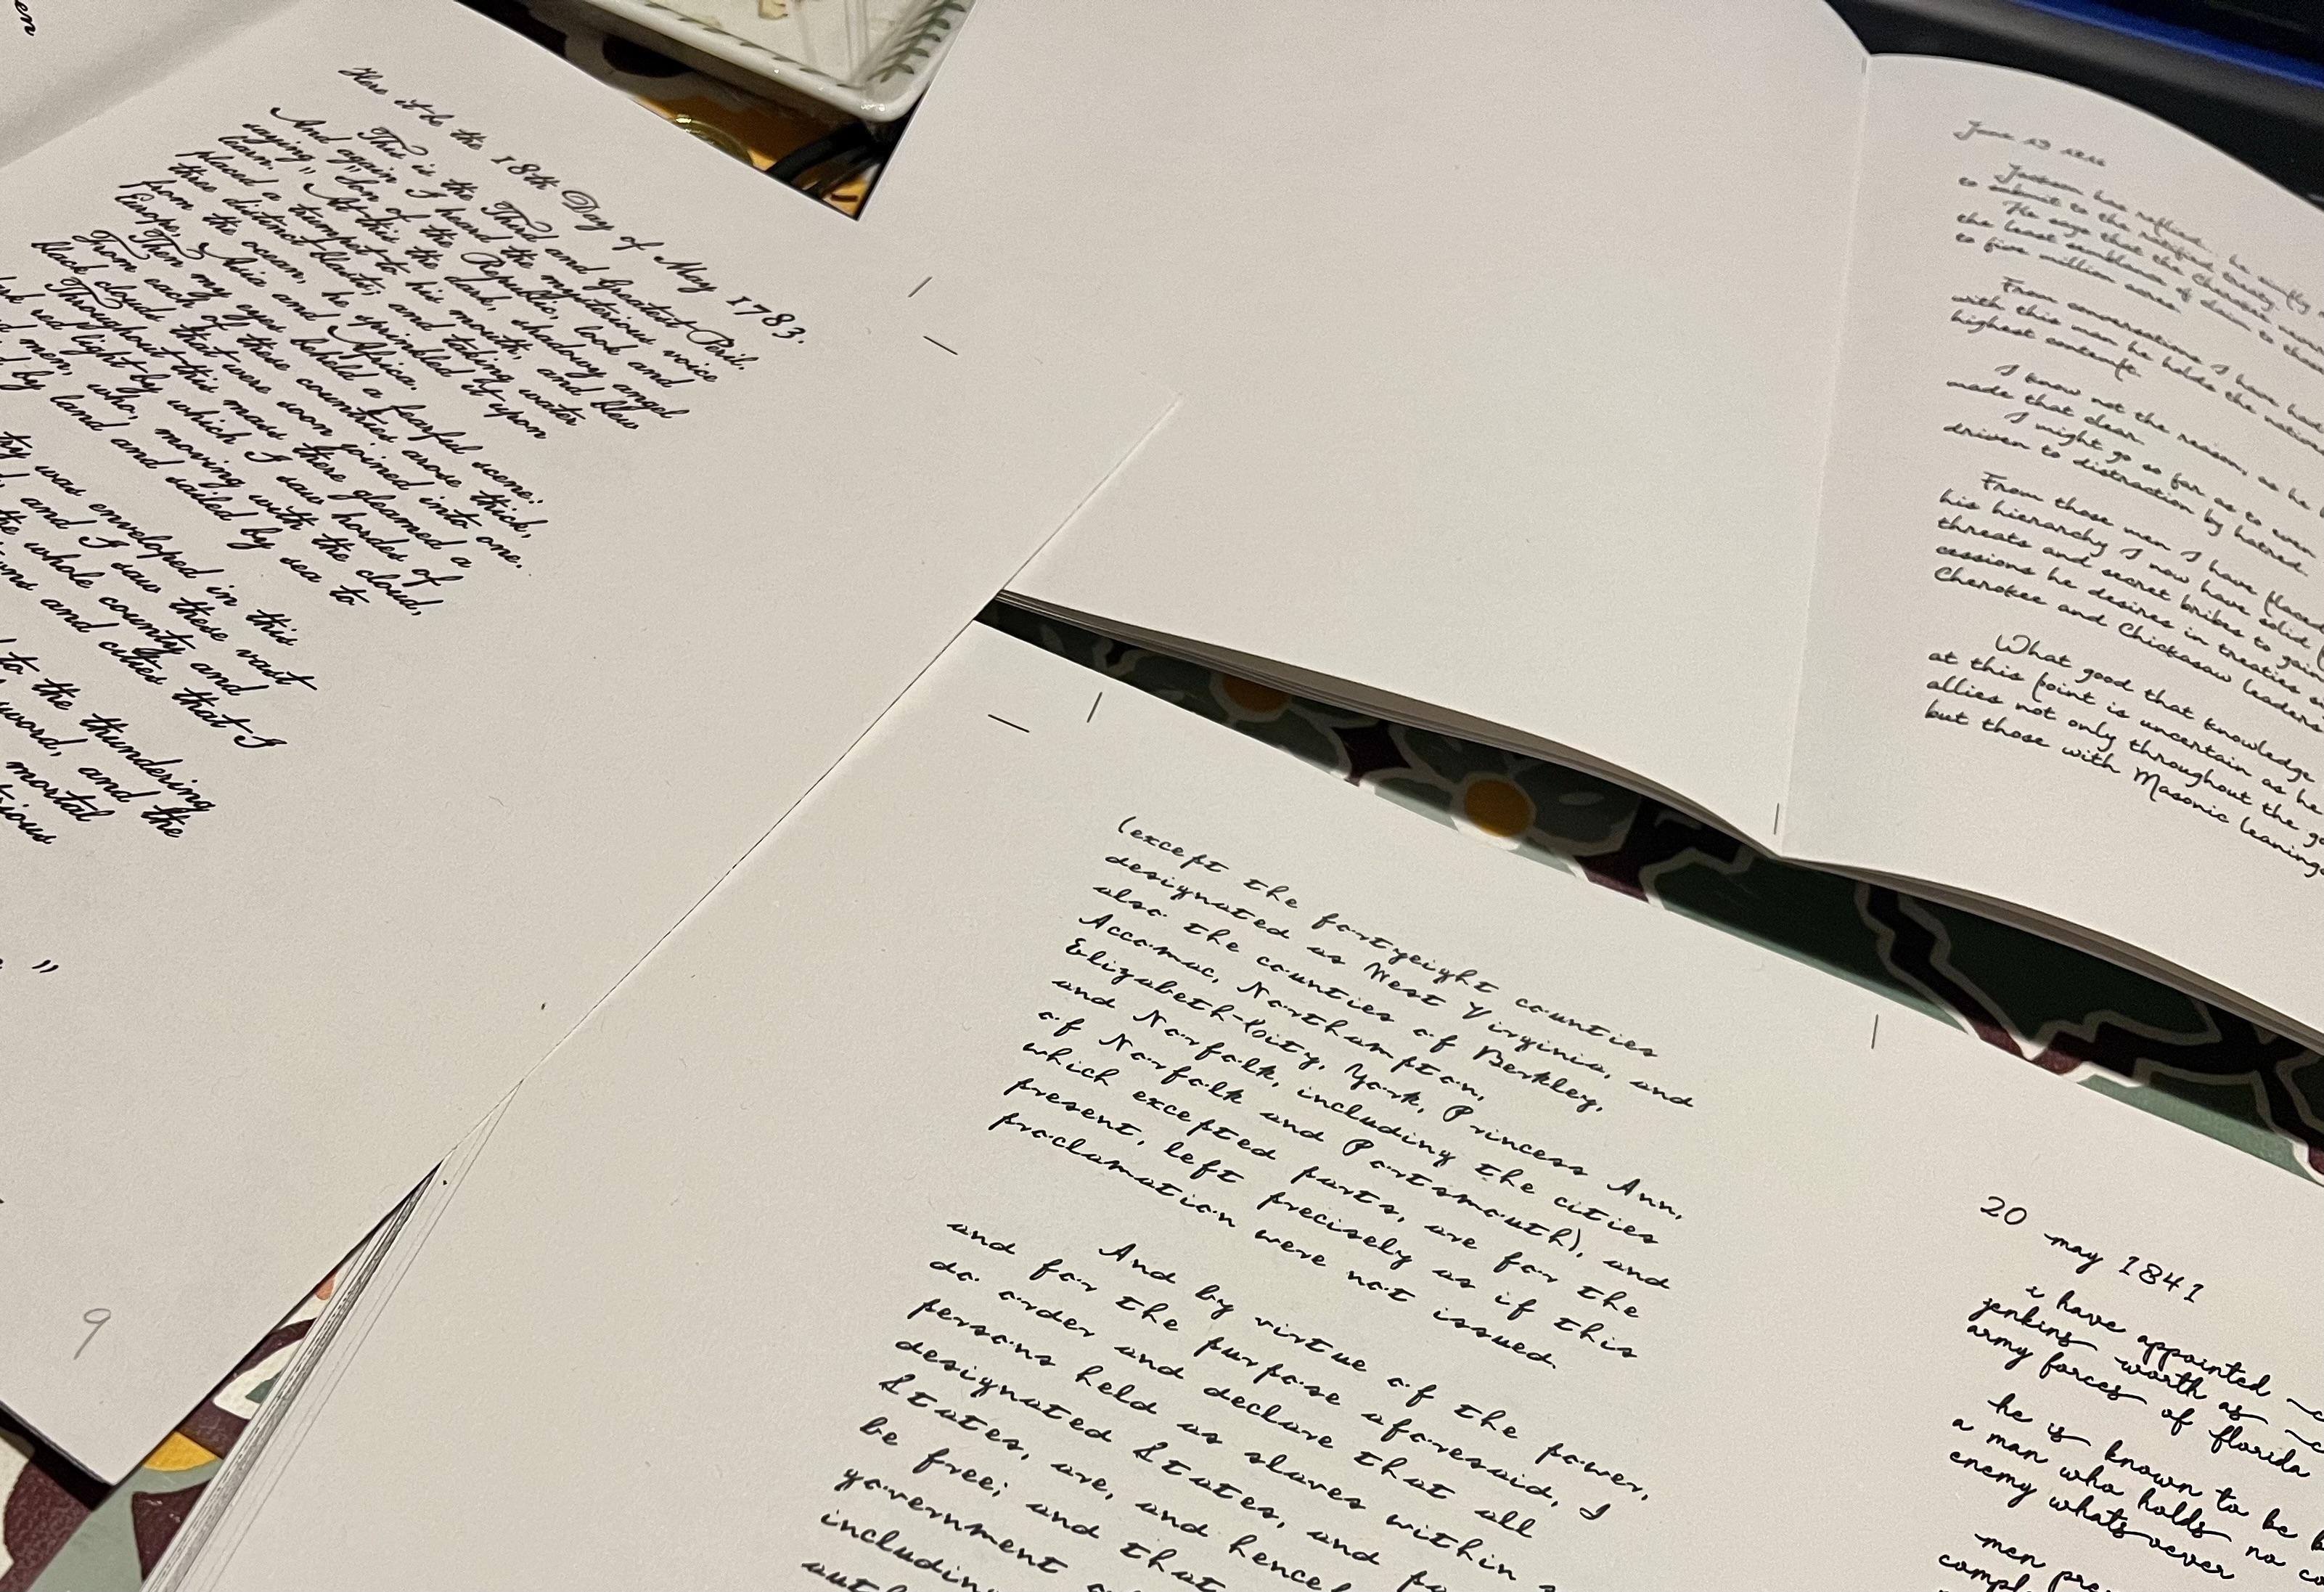 Here it be the 18th Day of May 1783.
This is the Third and Greatest Peril.
And again I heard the mysterious voice
saying, "Son of the Republic, look and
learn." At this the dark, shadowy angel
placed a trumpet to his mouth, and blew
three distinct blasts; and taking water
from the ocean, he sprinkled it upon
Europe, Asia and Africa.
Then my eyes beheld a fearful scene:
From each of these counties arose thick,
black clouds that were soon joined into one.
Throughout this mass there gleamed a
red light by which I saw hordes of
men, who, moving with the cloud,
by land and sailed by sea to
was enveloped in this
and I saw these vast
the whole county and
and cities that I
to the thundering
sword, and the
mortal
"
9
Jackson has
to submit to the ratified treaty
He says that the Cherokee never
the least semblance of claim to
to five million acres.
From conversations I have had
with this man he holds the
highest contempt.
I know not the reason, as he
made that clear.
I might go so far as to even
driven to distraction by hatred.
From those men I have placed
his hierarchy I now have solid
threats and secret bribes to gain
cessions he desires in treaties
Cherokee and Chickasaw leaders
What good that knowledge
at this point is uncertain as he
allies not only throughout the
but those with Masonic leanings
(except the fortyeight counties
designated as West Virginia, and
also the counties of Berkley,
Accomac, Northampton,
Elizabeth-City, York, Princess Ann,
and Norfolk, including the cities
of Norfolk and Portsmouth), and
which excepted parts, are for the
present, left precisely as if this
proclamation were not issued.
And by virtue of the power,
and for the purpose aforesaid, I
do order and declare that all
persons held as slaves within
designated States, and
States, are, and
be free; and that
government
including
20
may 1841
i have appointed
jenkins worth as
army forces of florida
he is known to be
a man who holds no
enemy whatsoever
men